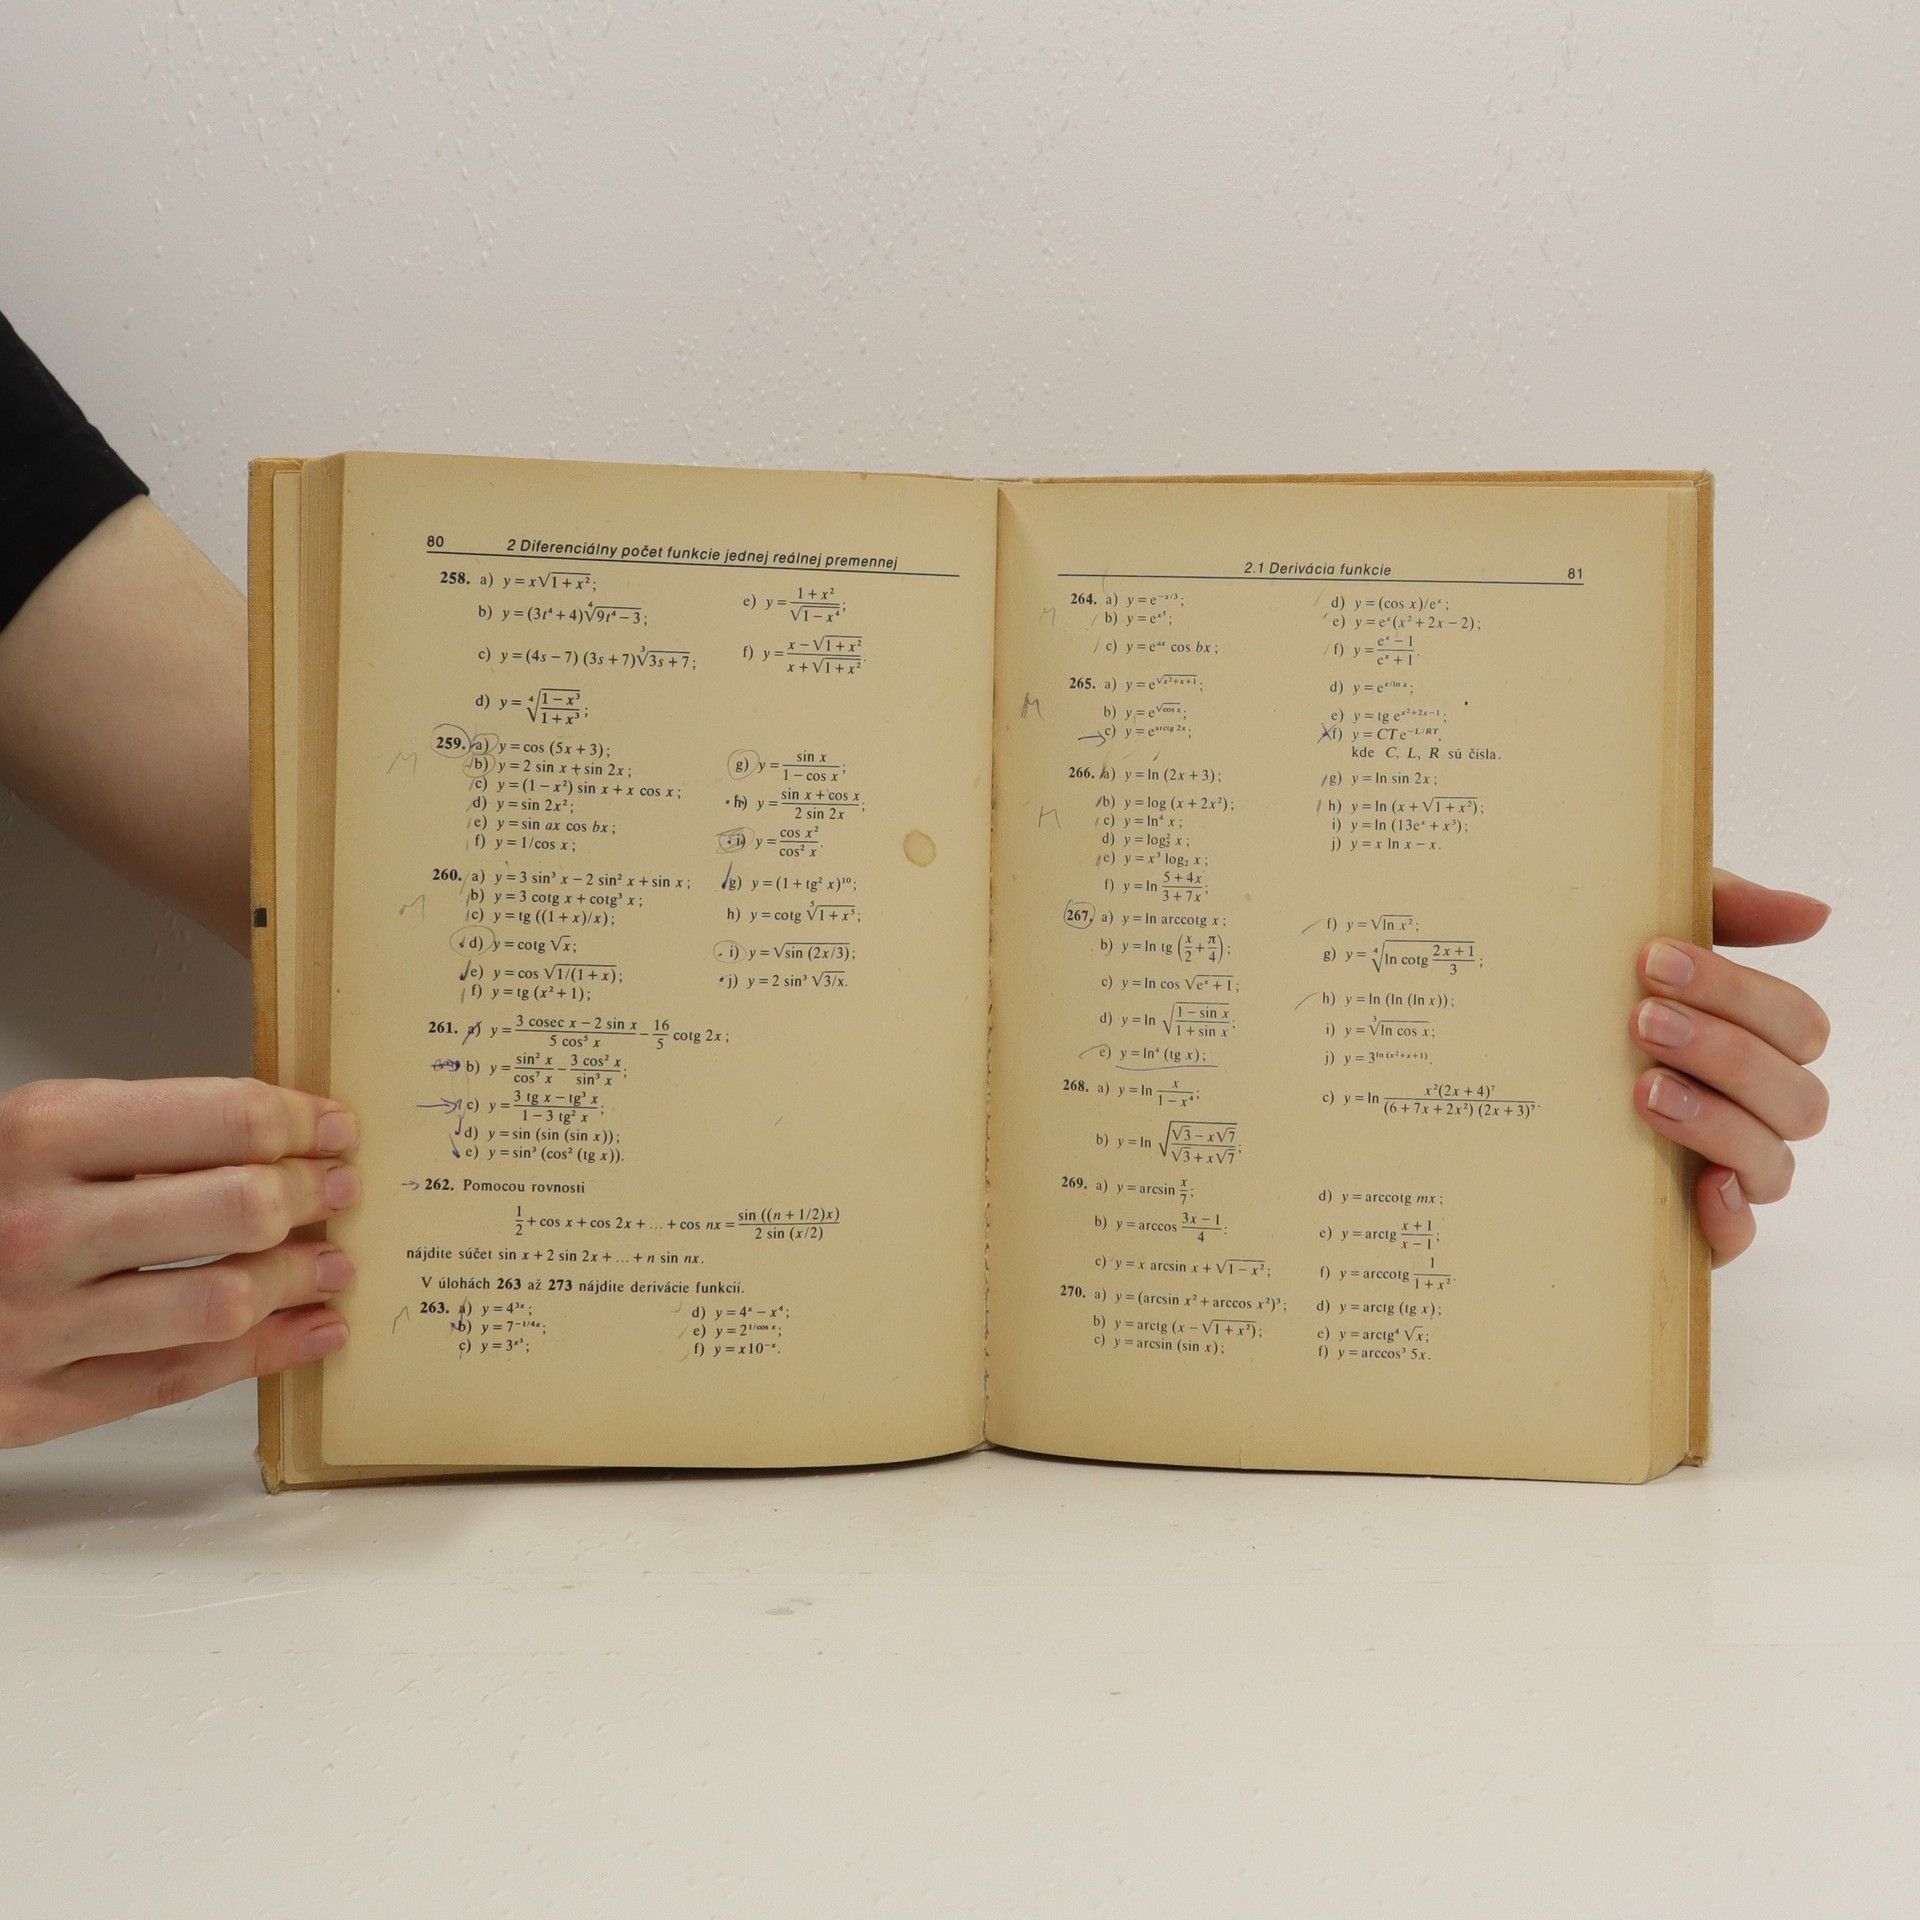 80 2 Diferenciálny počet funkcie jednej reálnej premennej
258. a) y = x√(1 + x²);
b) y = (3t⁴ + 4)⁴√(9t⁴ − 3);
c) y = (4s − 7) (3s + 7)³√(3s + 7);
d) y = ⁴√((1 − x³)/(1 + x³));
e) y = (1 + x²)/√(1 − x⁴);
f) y = (x − √(1 + x²))/(x + √(1 + x²)).
259. a) y = cos (5x + 3);
b) y = 2 sin x + sin 2x;
c) y = (1 − x²) sin x + x cos x;
d) y = sin 2x²;
e) y = sin ax cos bx;
f) y = 1/cos x;
g) y = sin x/(1 − cos x);
h) y = (sin x + cos x)/(2 sin 2x);
y = cos x²/cos² x.
260. a) y = 3 sin³ x − 2 sin² x + sin x;
b) y = 3 cotg x + cotg³ x;
c) y = tg ((1 + x)/x);
d) y = cotg √x;
e) y = cos √(1/(1 + x));
f) y = tg (x² + 1);
g) y = (1 + tg² x)¹⁰;
h) y = cotg ⁵√(1 + x⁵);
i) y = √(sin (2x/3));
j) y = 2 sin³ √(3/x).
261. a) y = (3 cosec x − 2 sin x)/(5 cos⁵ x) − 16/5 cotg 2x;
b) y = sin² x/cos⁷ x − 3 cos² x/sin³ x;
c) y = (3 tg x − tg³ x)/(1 − 3 tg² x);
d) y = sin (sin (sin x));
e) y = sin³ (cos² (tg x)).
262. Pomocou rovnosti
1/2 + cos x + cos 2x + ... + cos nx = sin ((n + 1/2)x)/(2 sin (x/2))
nájdite súčet sin x + 2 sin 2x + ... + n sin nx.
V úlohách 263 až 273 nájdite derivácie funkcií.
263. a) y = 4³ˣ;
b) y = 7^(−1/4x);
c) y = 3^(x³);
d) y = 4ˣ − x⁴;
e) y = 2^(1/cos x);
f) y = x10⁻ˣ.
2.1 Derivácia funkcie 81
264. a) y = e^(−x/3);
b) y = e^(x⁵);
c) y = e^(ax) cos bx;
d) y = (cos x)/eˣ;
e) y = eˣ(x² + 2x − 2);
f) y = (eˣ − 1)/(eˣ + 1).
265. a) y = e^(√(x²+x+1));
b) y = e^(√cos x);
c) y = e^(arctg 2x);
d) y = e^(x/ln x);
e) y = tg e^(x²+2x−1);
f) y = CTe^(−L/RT),
kde C, L, R sú čísla.
266. a) y = ln (2x + 3);
b) y = log (x + 2x²);
c) y = ln⁴ x;
d) y = log₂² x;
e) y = x³ log₂ x;
f) y = ln (5 + 4x)/(3 + 7x);
g) y = ln sin 2x;
h) y = ln (x + √(1 + x²));
i) y = ln (13eˣ + x³);
j) y = x ln x − x.
267. a) y = ln arccotg x;
b) y = ln tg (x/2 + π/4);
c) y = ln cos √(eˣ + 1);
d) y = ln √((1 − sin x)/(1 + sin x));
e) y = ln⁴ (tg x);
f) y = √(ln x²);
g) y = ⁴√(ln cotg (2x + 1)/3);
h) y = ln (ln (ln x));
i) y = ³√(ln cos x);
j) y = 3^(ln (x²+x+1)).
268. a) y = ln x/(1 − x⁴);
b) y = ln √((√3 − x√7)/(√3 + x√7));
c) y = ln x²(2x + 4)⁷/((6 + 7x + 2x²) (2x + 3)⁷).
269. a) y = arcsin x/7;
b) y = arccos (3x − 1)/4;
c) y = x arcsin x + √(1 − x²);
d) y = arccotg mx;
e) y = arctg (x + 1)/(x − 1);
f) y = arccotg 1/(1 + x²).
270. a) y = (arcsin x² + arccos x²)³;
b) y = arctg (x − √(1 + x²);
c) y = arcsin (sin x);
d) y = arctg (tg x);
e) y = arctg⁴ √x;
f) y = arccos³ 5x.